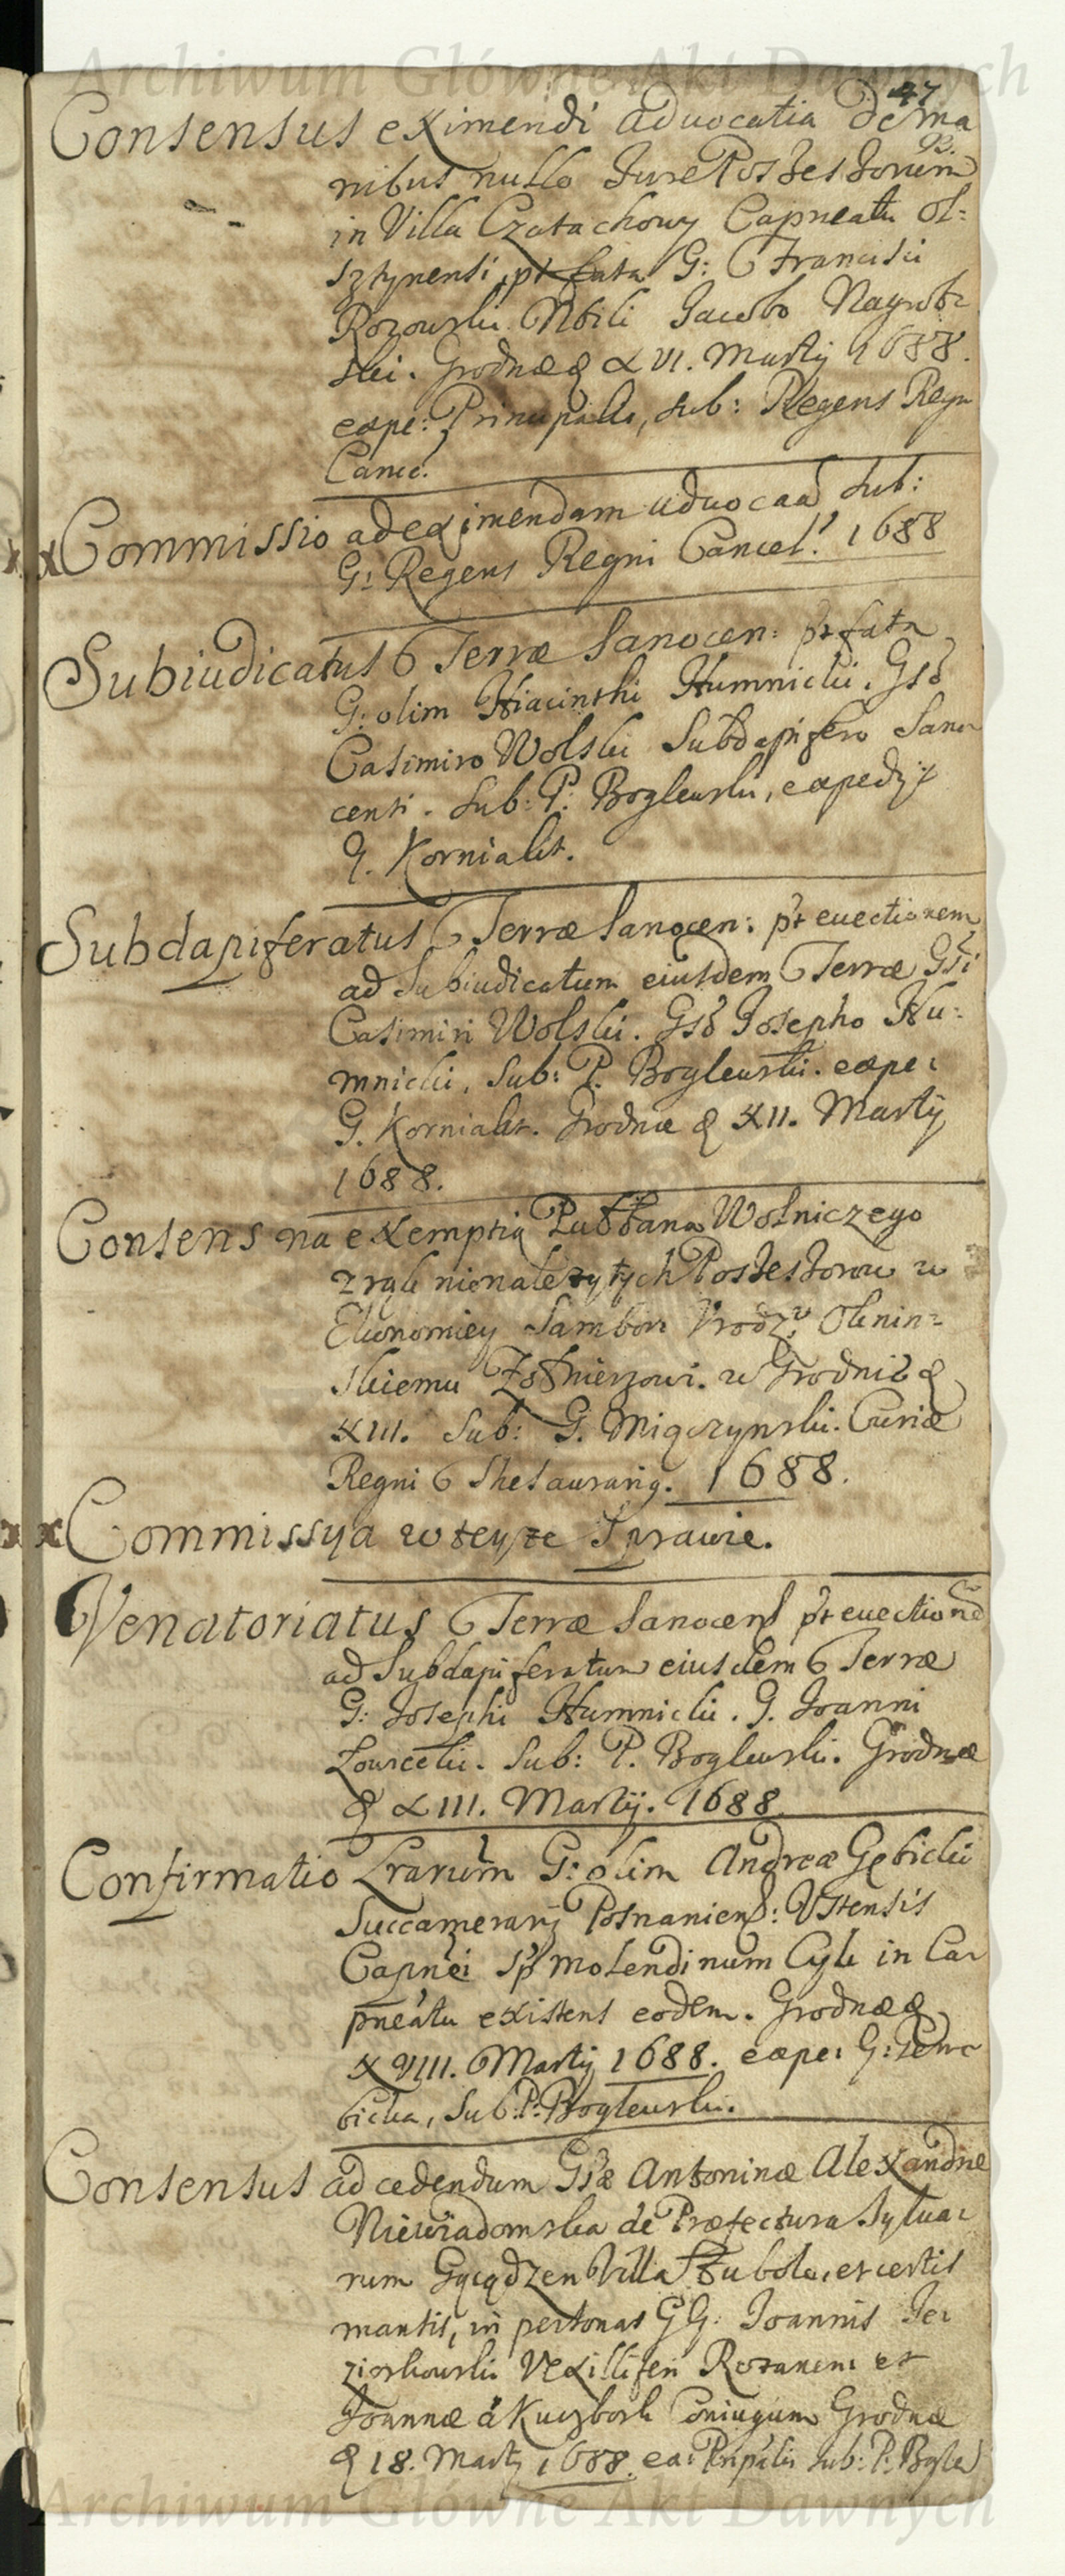 Archiwum Główne Akt Dawnych
47
Consensus eximendi aduocatia de ma
nibus nullo Jure Possessorum
in Villa Czatachowy Capneatu Ol:
sztynensi, pt fata G: Francisci
Rozowski Nbili Jacobo Nagrob:
ski. Grodnæ d XVI. Martij 1688.
expe: Principalis, sub: Regens Regn
Canc:
x Commissio ad eximendam aduocaa sub:
G: Regens Regni Cancel: 1688
Subiudicatus Terræ Sanocen: pt fata
G: olim Hiacinthi Humnicki. Gsō
Casimiro Wolski Subdapifero Sano
censi. Sub: P. Boglewski, expedijt
G. Kornialit.
Subdapiferatus Terræ Sanocen: pt euectionem
ad Subiudicatum eiusdem Terræ Gsi
Casimiri Wolski. Gsō Josepho Hu:
mnicki, Sub: P. Boglewski. expe:
G. Kornialit. Grodnæ d XII. Martij
1688.
Consens na exemptią Pustkana Wolniczego
z rąk nienależytych Possessorow w
Ekonomiey Sambor: Vrodz: Olenin=
skiemu Żołnierzowi. w Grodnie d
XIII. Sub: G. Miączynski. Curiæ
Regni Thesaurarig. 1688.
x Commissya w teyze Sprawie.
Venatoriatus Terræ Sanocens pt euectione
ad Subdapiferatum eiusdem Terræ
G: Josephi Humnicki. G. Joanni
Lowcelii. Sub: P. Boglewski. Grodnæ
d XIII. Martij. 1688.
Confirmatio Lrarum G: olim Andreæ Gębicki
Succamerarij Posnaniens: Vstensis
Capnei sp molendinum Cyk in Ca:
pneatu existens eodem. Grodnæ d
XVIII. Martij 1688. expe: G: Dem:
bicka, Sub: P: Boglewski.
Consensus ad cedendum Gsæ Antoninæ Alexandræ
Niewiadomska de Præfectura Sylua:
rum Villa et certis
mantis, in personas GG: Joannis Je:
ziorkowski Vexilliferi Rozanen: et
Joannæ a Kuczbork Coniugum Grodnæ
d 18. Martij 1688. ex: Pnpalis sub: P: Bogle
Archiwum Główne Akt Dawnych